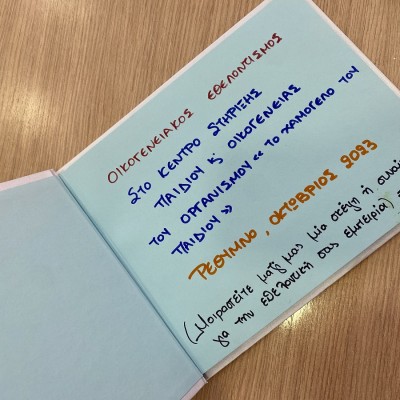 ΟΙΚΟΓΕΝΕΙΑΚΟΣ ΕΘΕΛΟΝΤΙΣΜΟΣ
ΣΤΟ ΚΕΝΤΡΟ ΣΤΗΡΙΞΗΣ
ΠΑΙΔΙΟΥ & ΟΙΚΟΓΕΝΕΙΑΣ
ΤΟΥ ΟΡΓΑΝΙΣΜΟΥ «ΤΟ ΧΑΜΟΓΕΛΟ ΤΟΥ
ΠΑΙΔΙΟΥ»
ΡΕΘΥΜΝΟ, ΟΚΤΩΒΡΙΟΣ 2023
(Μοιραστείτε μαζί μας μία σκέψη ή συναί
για την εθελοντική σας εμπειρία)